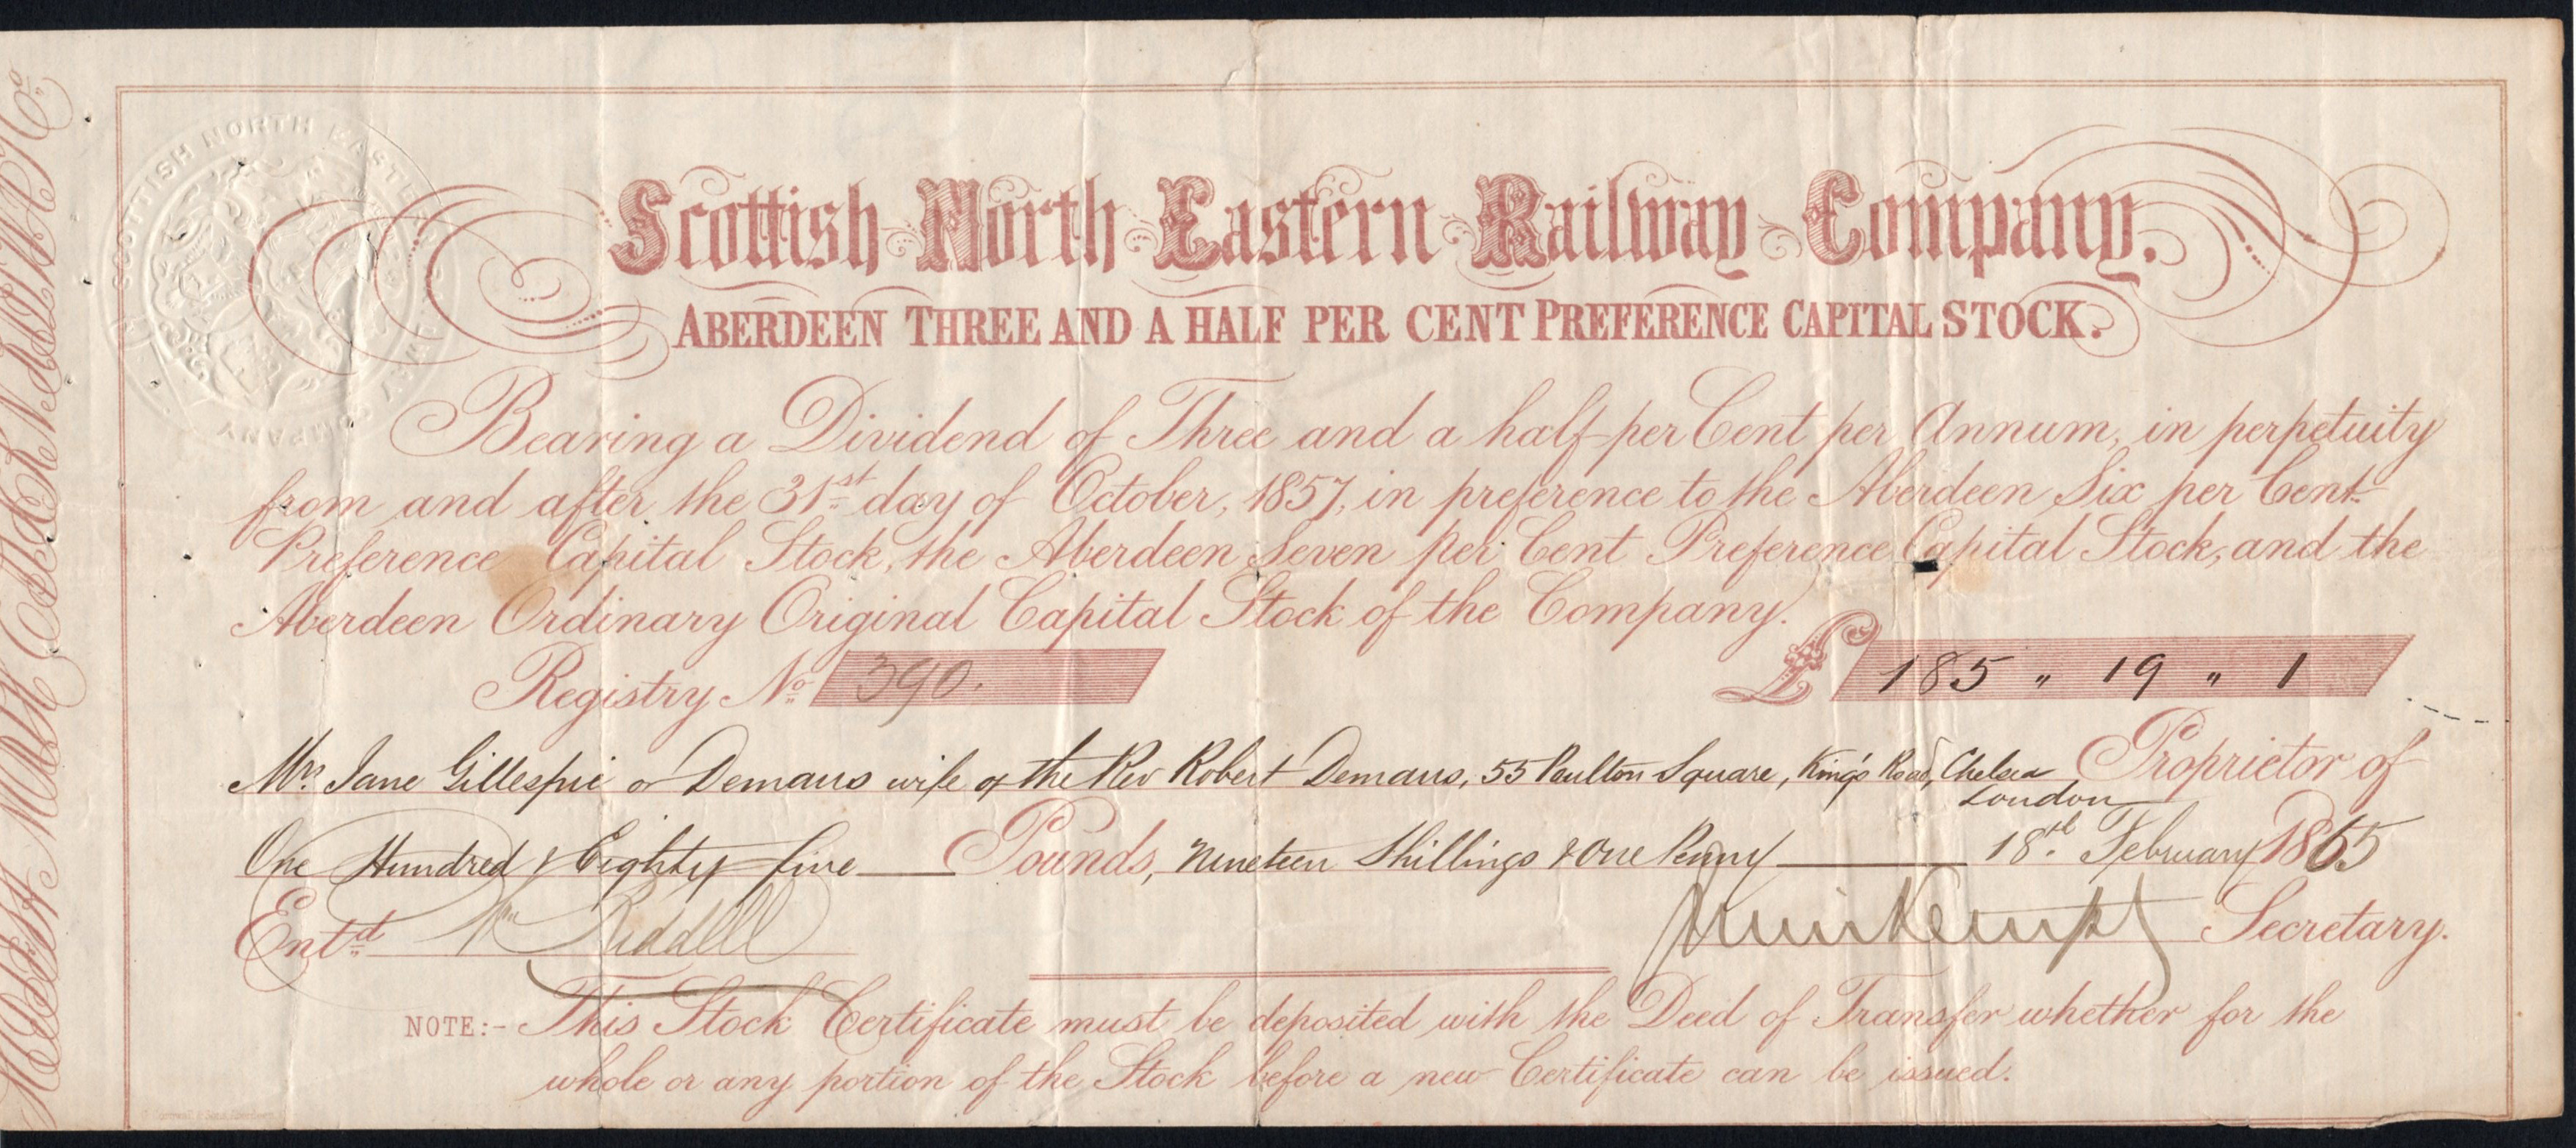 SCOTTISH NORTH EASTERN RAILWAY COMPANY
Scottish North Eastern Railway Company.
ABERDEEN THREE AND A HALF PER CENT PREFERENCE CAPITAL STOCK.
Bearing a Dividend of Three and a half per Cent per Annum, in perpetuity
from and after the 31st day of October, 1857, in preference to the Aberdeen Six per Cent
Preference Capital Stock, the Aberdeen Seven per Cent Preference Capital Stock, and the
Aberdeen Ordinary Original Capital Stock of the Company.
Registry No 390. £ 185 " 19 " 1
Mrs Jane Gillespie or Demaus wife of the Rev Robert Demaus, 55 Paulton Square, King's Road, Chelsea London Proprietor of
One Hundred & Eighty five Pounds, Nineteen Shillings & One Penny 18th February 1865
Entd Wm Riddell Secretary.
NOTE:- This Stock Certificate must be deposited with the Deed of Transfer whether for the
whole or any portion of the Stock before a new Certificate can be issued.